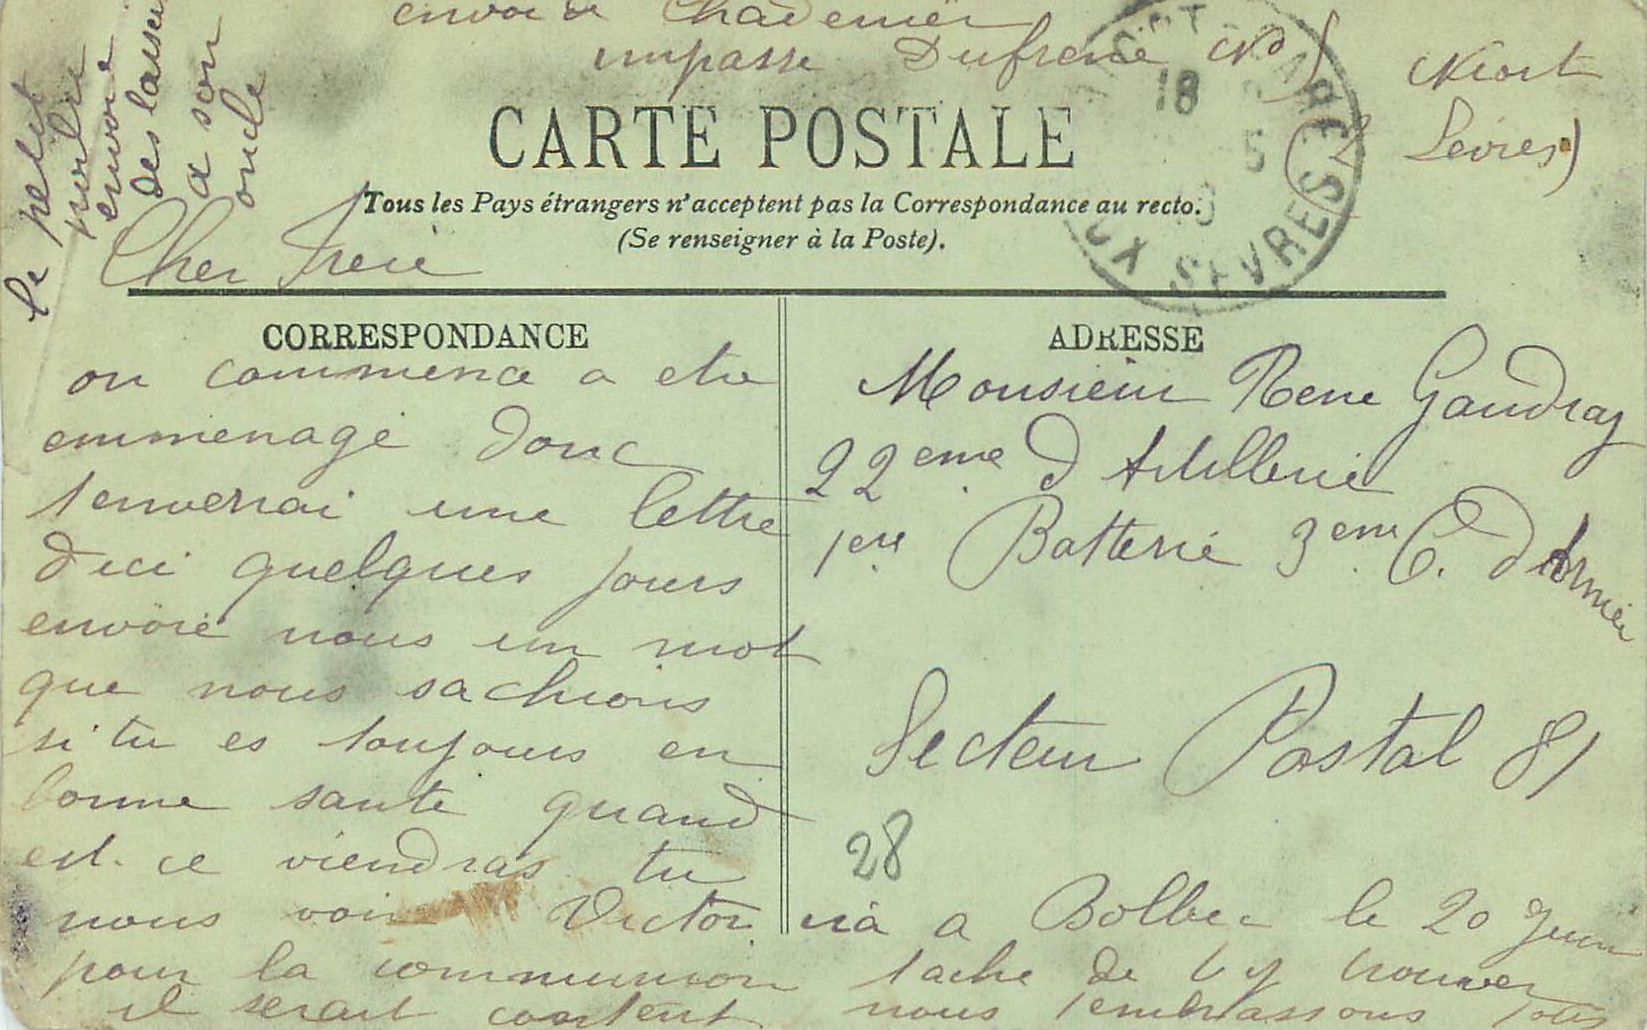 envoi de Chademier
impasse Dufrene Niort
Sèvres)
le petit
envoie
des
a son
oncle
NIORT-GARE
18
5
SEVRES
CARTE POSTALE
Tous les Pays étrangers n'acceptent pas la Correspondance au recto.
(Se renseigner à la Poste).
Cher Frere
CORRESPONDANCE
on commence a etre
emmenagé donc
tenverrai une lettre
dici quelques jours
envoie nous un mot
que nous sachions
si tu es toujours en
bonne santé quand
est-ce viendras tu
nous voir Victor va a Bolbec le 20 Juin
pour la communion tache de ty trouver
il serait content nous tembrassons tous
ADRESSE
Monsieur Rene Gaudray
22eme d Artillerie
1ere Batterie 3eme C. d Armée
Secteur Postal 81
28